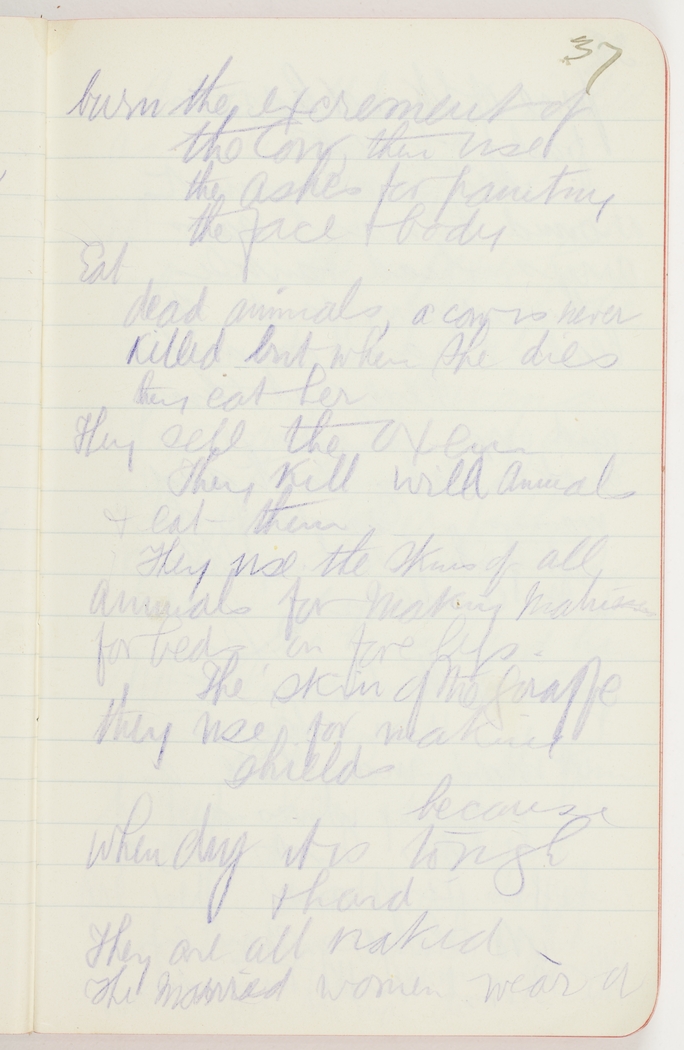 37
burn the excrement of
the Cow, then use
the ashes for painting
the face & body
Eat
dead animals, a cow is never
killed but when she dies
they eat her
They sell the oxen
They kill wild animals
& eat them
They use the skins of all
animals for making
for beds on
The skin of the Giraffe
they use for making
shields
because
when dry it is tough
& hard
They are all naked
The married women wear a